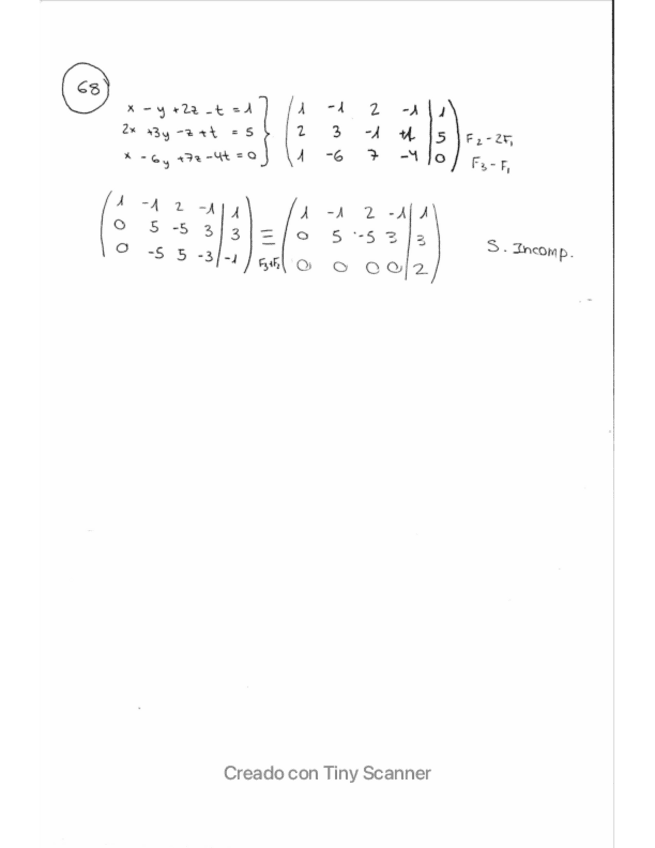 68
x - y + 2z - t = 1
2x + 3y - z + t = 5
x - 6y + 7z - 4t = 0
1 -1 2 -1 | 1
2 3 -1 +1 | 5 F2 - 2F1
1 -6 7 -4 | 0 F3 - F1
1 -1 2 -1 | 1
0 5 -5 3 | 3
0 -5 5 -3 | -1
≡
F3+F2
1 -1 2 -1 | 1
0 5 -5 3 | 3
0 0 0 0 | 2
S. Incomp.
Creado con Tiny Scanner